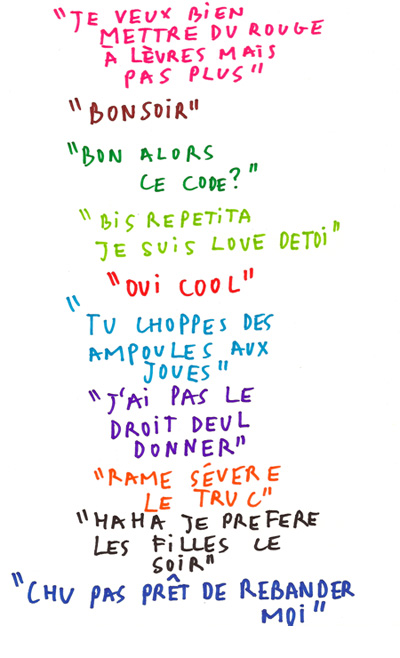 "JE VEUX BIEN
METTRE DU ROUGE
A LÈVRES MAIS
PAS PLUS"
"BONSOIR"
"BON ALORS
CE CODE?"
"BIS REPETITA
JE SUIS LOVE DETOI"
"OUI COOL"
"TU CHOPPES DES
AMPOULES AUX
JOUES"
"J'AI PAS LE
DROIT DEUL
DONNER"
"RAME SÉVERE
LE TRUC"
"HAHA JE PREFERE
LES FILLES CE
SOIR"
"CHU PAS PRÊT DE REBANDER
MOI"